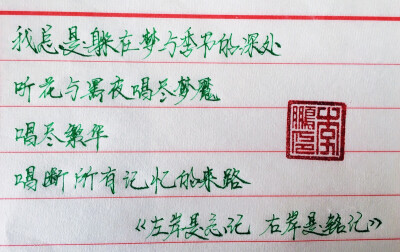 我总是躲在梦与季节的深处
听花与黑夜唱尽梦魇
唱尽繁华
唱断所有记忆的来路
《左岸是忘记 右岸是铭记》